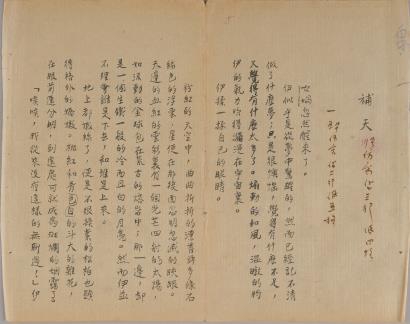 補天
女媧忽然醒來了。
伊似乎是從夢中驚醒的，然而已經記不清
做了什麼夢；只是很懊惱，覺得有什麼不足，
又覺得有什麼太多了。煽動的和風，暖暾的將
伊的氣力吹得瀰漫在宇宙裏。
伊揉一揉自己的眼睛。
粉紅的天空中，曲曲折折的漂着許多條石
綠色的浮雲，星便在那後面忽明忽滅的䀹眼。
天邊的血紅的雲彩裏有一個光芒四射的太陽，
如流動的金球包在荒古的熔岩中；那一邊，却
是一個生鐵一般的冷而且白的月亮。然而伊並
不理會誰是下去，和誰是上來。
地上都嫩綠了，便是不很換葉的松柏也顯
得格外的嬌嫩。桃紅和青白色的斗大的雜花，
在眼前還分明，到遠處可就成爲斑斕的烟靄了。
「唉唉，我從來沒有這樣的無聊過！」伊